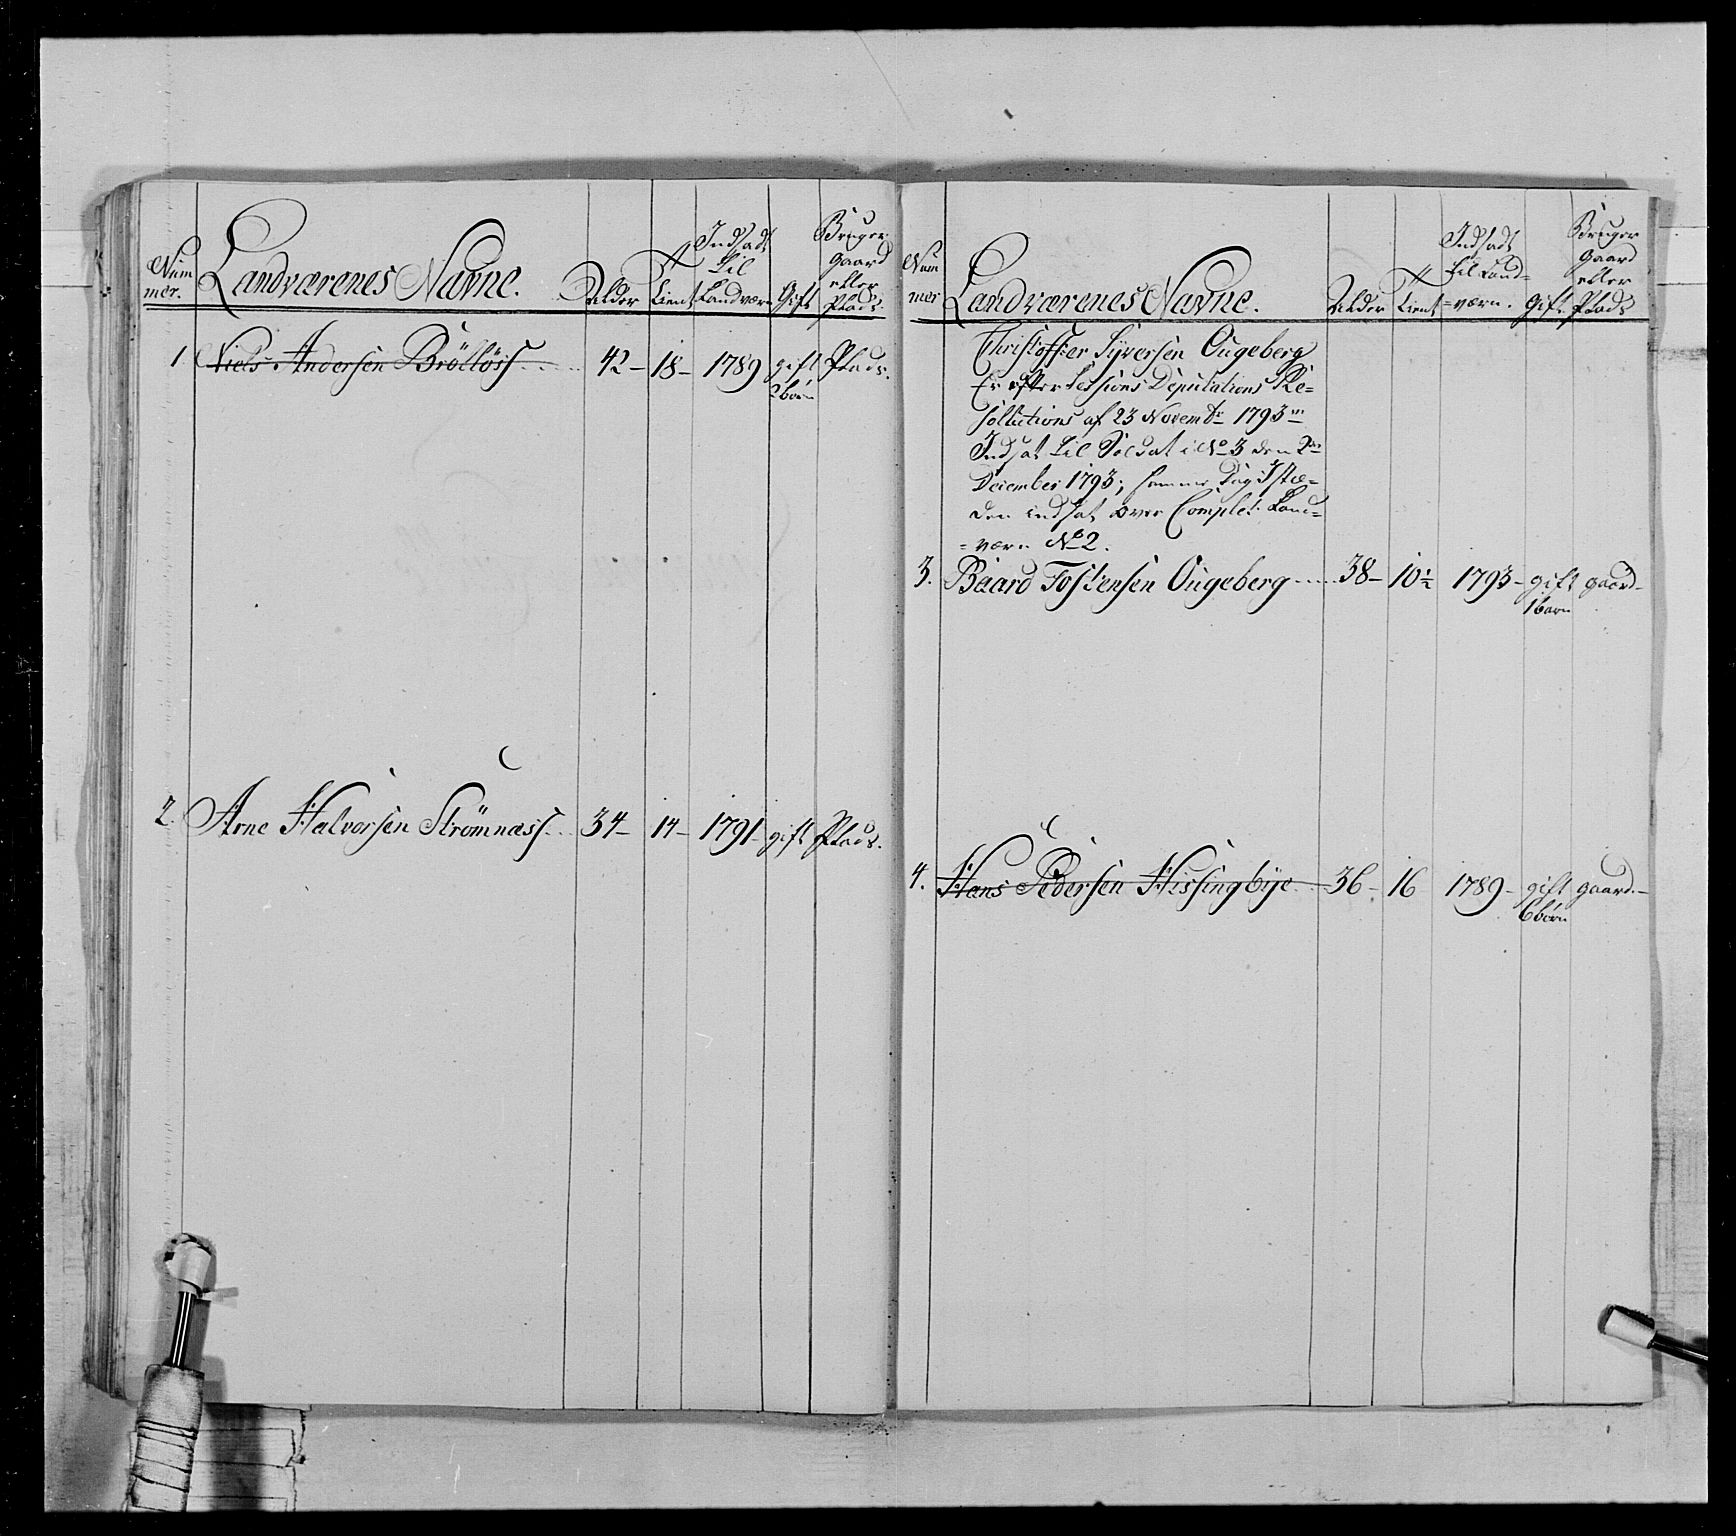 Num
mer. Landværenes Navne. Alder Tient Indsadt til Landværn Gift Bruger gaard eller Plads
1 Niels Andersen Bröttöss 42 18 1789 gift Plads.
2 børn
2. Arne Halvorsen Strömnæss 34 14 1791 gift Plads.
Num
mer Landværenes Navne. Alder Tient Indsadt til Land=værn. gift Bruger Gaard eller Plads
Christoffer Syversen Ougeberg
Er efter Sessions Deputations Re=
sollutions af 23 Novembr 1793
Indsat til Soldat i No 3 den 2den
December 1793; samme Dag i Stæ=
den indsat over Complet Land=
=værn No 2.
3. Baard Tostensen Ougeberg 38 10½ 1793 gift gaard
1 barn
4. Hans Pedersen Hissingbye 36 16 1789 gift gaard.
6 børn